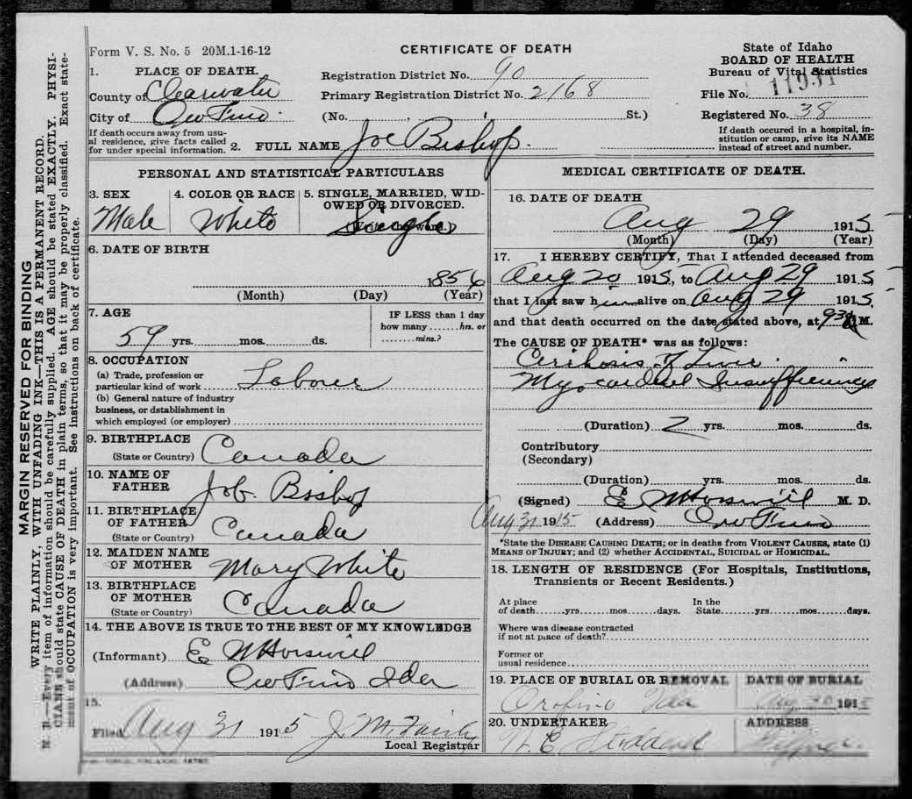 MARGIN RESERVED FOR BINDING
WRITE PLAINLY, WITH UNFADING INK—THIS IS A PERMANENT RECORD.
N. B.—Every item of information should be carefully supplied. AGE should be stated EXACTLY. PHYSI-
CIANS should state CAUSE OF DEATH in plain terms, so that it may be properly classified. Exact state-
ment of OCCUPATION is very important. See instructions on back of certificate.
Form V. S. No. 5 20M.1-16-12
CERTIFICATE OF DEATH
State of Idaho
BOARD OF HEALTH
Bureau of Vital Statistics
1. PLACE OF DEATH.
Registration District No. 90
County of Clearwater
Primary Registration District No. 2168
File No.
City of Oro Fino
(No. St.)
Registered No. 38
If death occurs away from usu-
al residence, give facts called
for under special information.
2. FULL NAME Joe Bishop.
If death occured in a hospital, in-
stitution or camp, give its NAME
instead of street and number.
PERSONAL AND STATISTICAL PARTICULARS
3. SEX
Male
4. COLOR OR RACE
White
5. SINGLE, MARRIED, WID-
OWED OR DIVORCED.
Single
6. DATE OF BIRTH
1856
(Month) (Day) (Year)
7. AGE
59 yrs. mos. ds.
IF LESS than 1 day
how many hrs. or
mins.?
8. OCCUPATION
(a) Trade, profession or
particular kind of work Laborer
(b) General nature of industry
business, or dstablishment in
which employed (or employer)
9. BIRTHPLACE
(State or Country) Canada
10. NAME OF
FATHER Job. Bishop
11. BIRTHPLACE
OF FATHER
(State or Country) Canada
12. MAIDEN NAME
OF MOTHER Mary White
13. BIRTHPLACE
OF MOTHER
(State or Country) Canada
14. THE ABOVE IS TRUE TO THE BEST OF MY KNOWLEDGE
(Informant) E W Horswill
(Address) Oro Fino Ida
15.
Filed Aug 31 1915 J. M. Fairly
Local Registrar
MEDICAL CERTIFICATE OF DEATH.
16. DATE OF DEATH
Aug 29 1915
(Month) (Day) (Year)
17. I HEREBY CERTIFY, That I attended deceased from
Aug 20 1915, to Aug 29 1915
that I last saw him alive on Aug 29 1915
and that death occurred on the date stated above, at 930 A M.
The CAUSE OF DEATH* was as follows:
Cirihosis of Liver.
Myocardial Insufficiency
(Duration) 2 yrs. mos. ds.
Contributory
(Secondary)
(Duration) yrs. mos. ds.
(Signed) E W Horswill M. D.
Aug 31 1915 (Address) Oro Fino
*State the DISEASE CAUSING DEATH; or in deaths from VIOLENT CAUSES, state (1)
MEANS OF INJURY; and (2) whether ACCIDENTAL, SUICIDAL or HOMICIDAL.
18. LENGTH OF RESIDENCE (For Hospitals, Institutions,
Transients or Recent Residents.)
At place
of death yrs. mos. days.
In the
State yrs. mos. days.
Where was disease contracted
if not at place of death?
Former or
usual residence
19. PLACE OF BURIAL OR REMOVAL
Orofino Ida
DATE OF BURIAL
Aug 30 1915
20. UNDERTAKER
W. E. Stoddard
ADDRESS